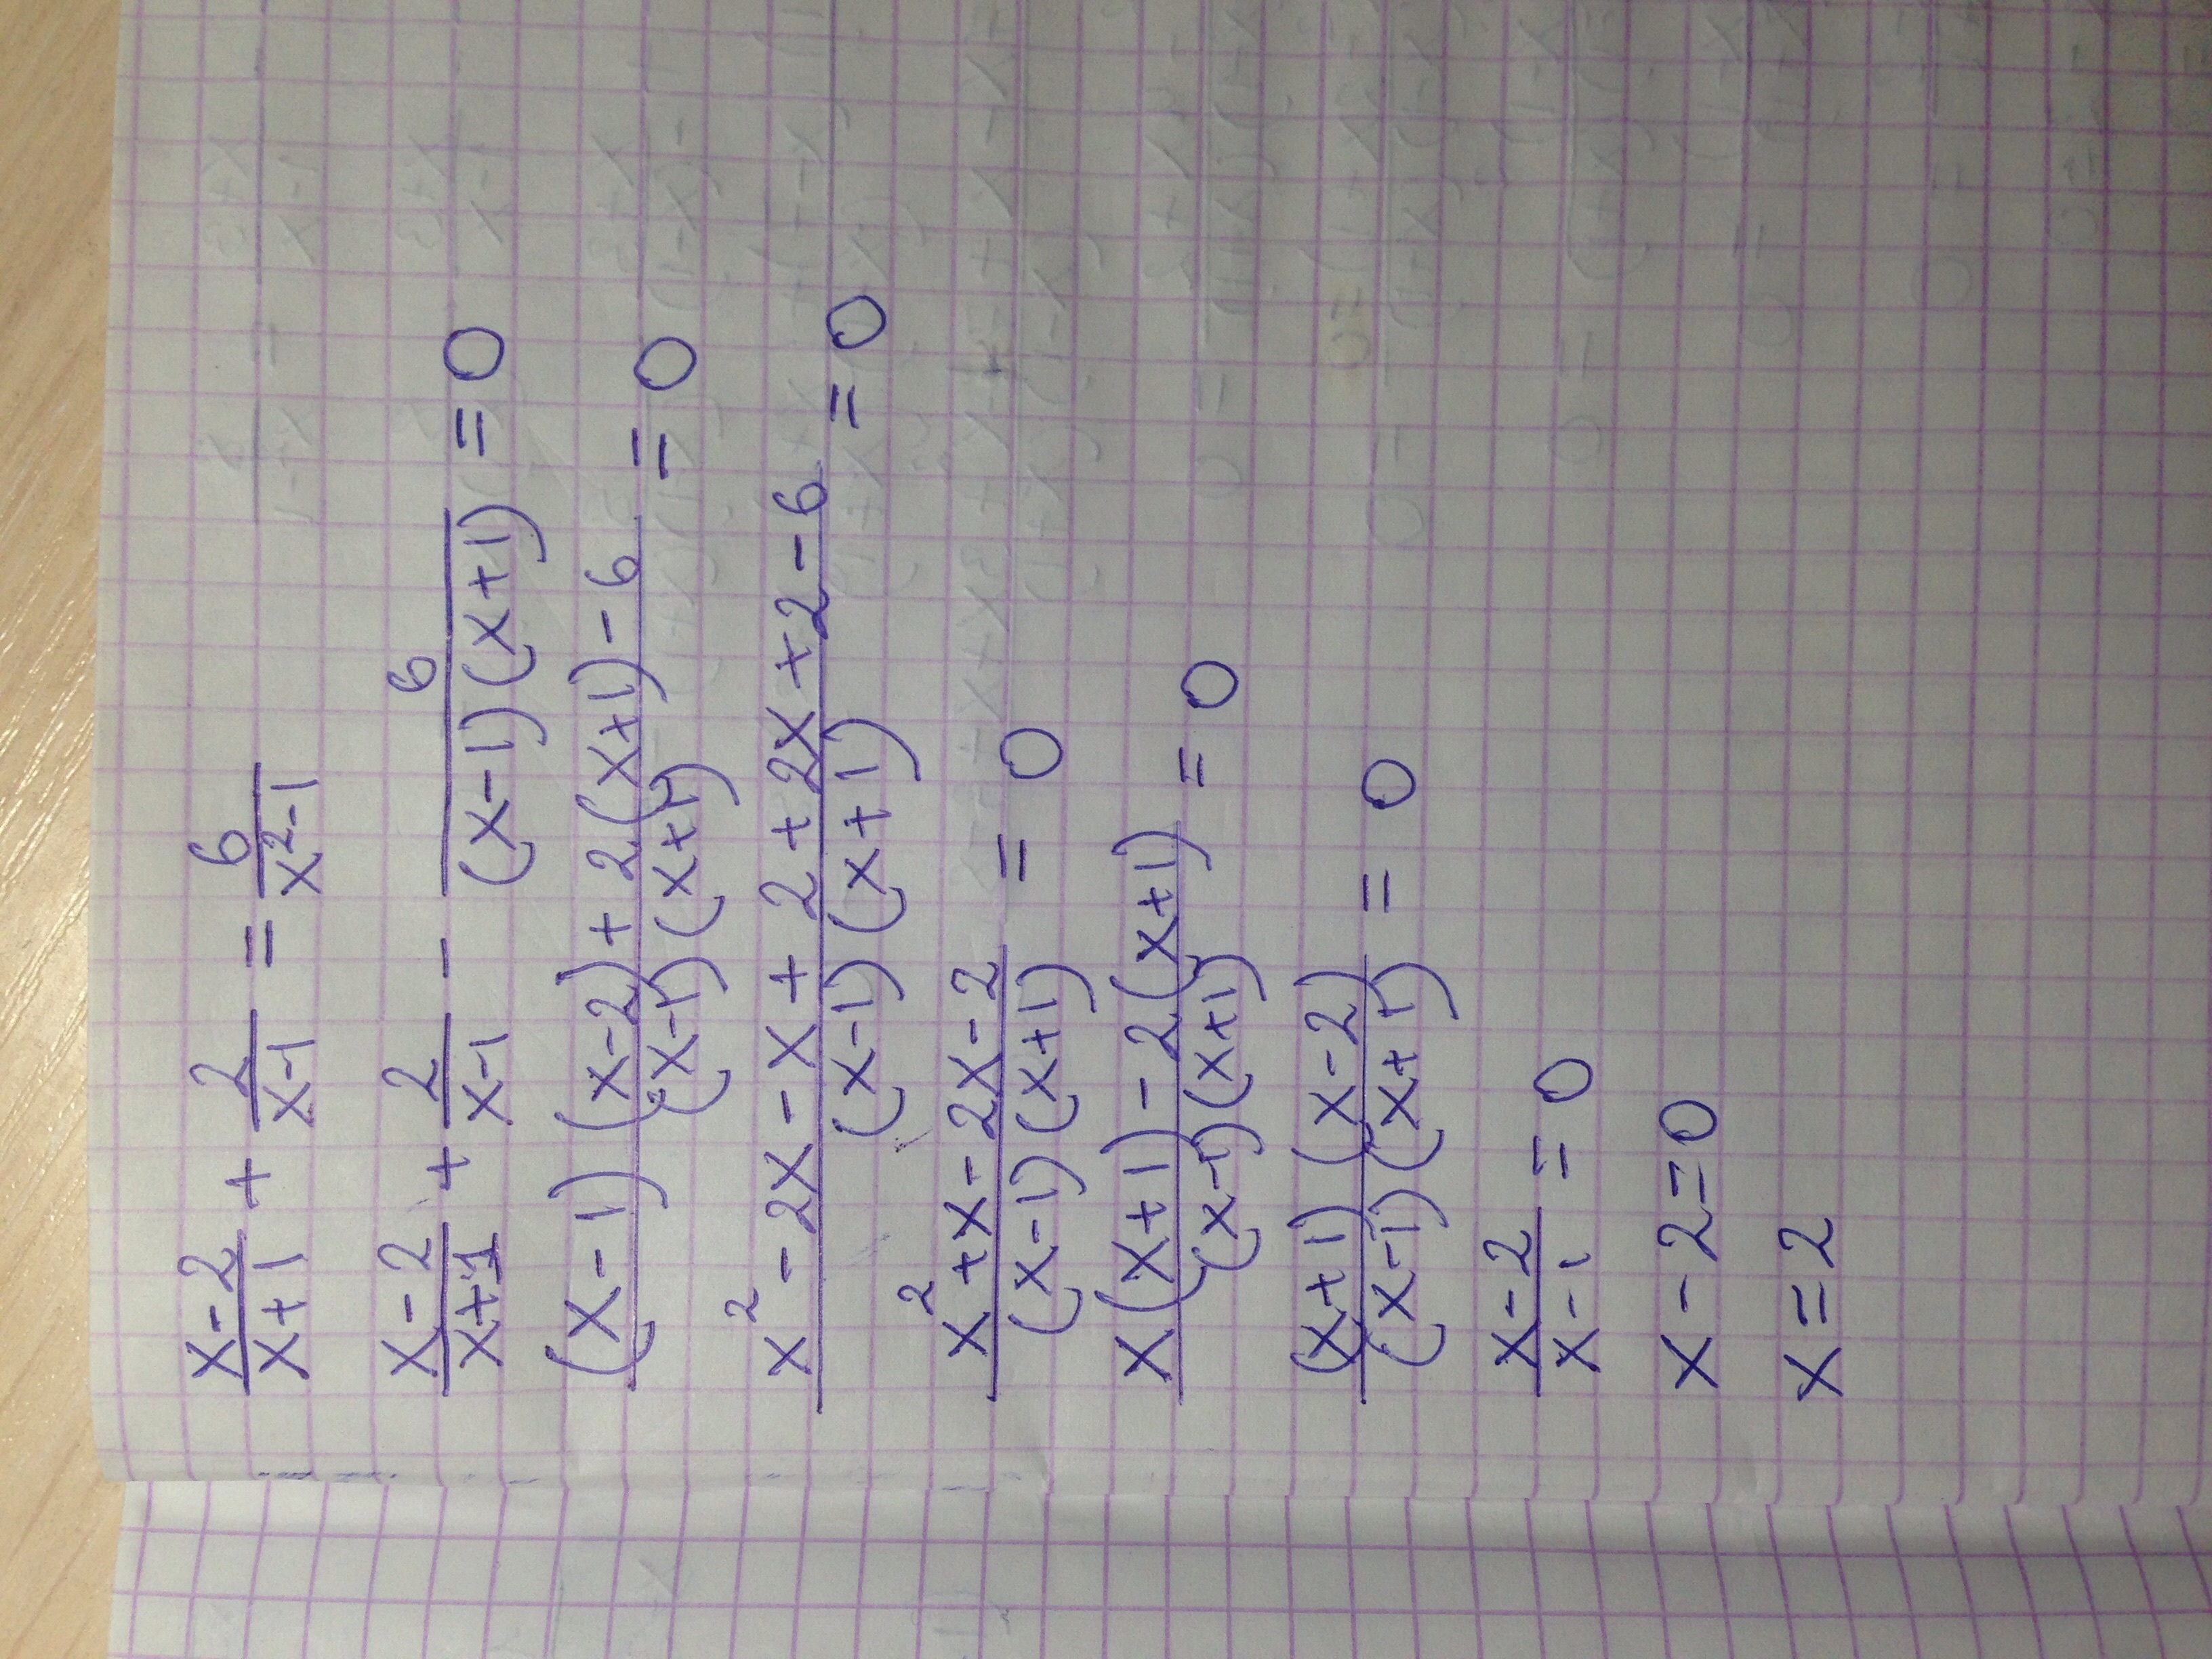 (x-2)/(x+1) + 2/(x-1) = 6/(x²-1)
(x-2)/(x+1) + 2/(x-1) - 6/((x-1)(x+1)) = 0
((x-1)(x-2)+2(x+1)-6)/((x-1)(x+1)) = 0
(x²-2x-x+2+2x+2-6)/((x-1)(x+1)) = 0
(x²+x-2x-2)/((x-1)(x+1)) = 0
(x(x+1)-2(x+1))/((x-1)(x+1)) = 0
((x+1)(x-2))/((x-1)(x+1)) = 0
(x-2)/(x-1) = 0
x-2=0
x=2